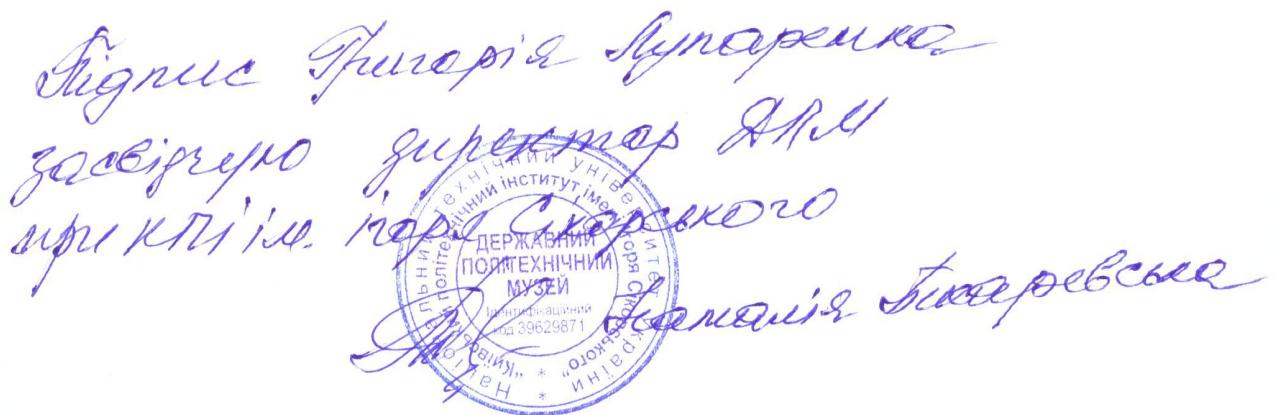 Підпис Григорія Лупаренка
засвідчую директор ДПМ
при КПІ ім. Ігоря Сікорського
Наталія Писаревська
Національний технічний університет України *
"Київський політехнічний інститут імені Ігоря Сікорського" *
ДЕРЖАВНИЙ
ПОЛІТЕХНІЧНИЙ
МУЗЕЙ
Ідентифікаційний
код 39629871